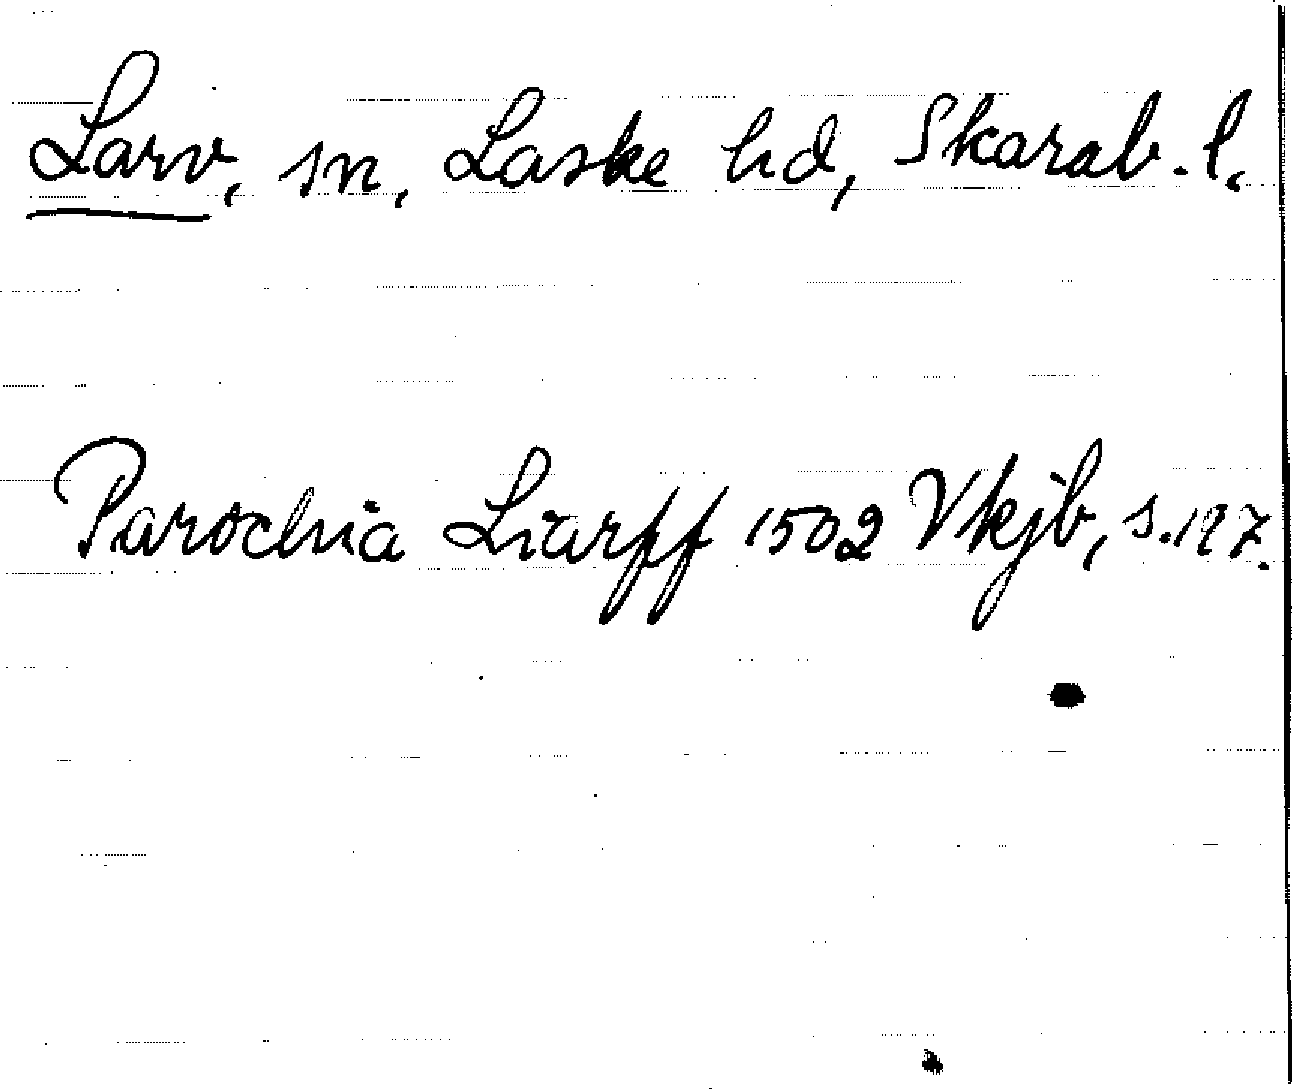 Larv, sn, Laske hd, Skarab. l.
Parochia Liarff 1502 Vkjb, s. 197.